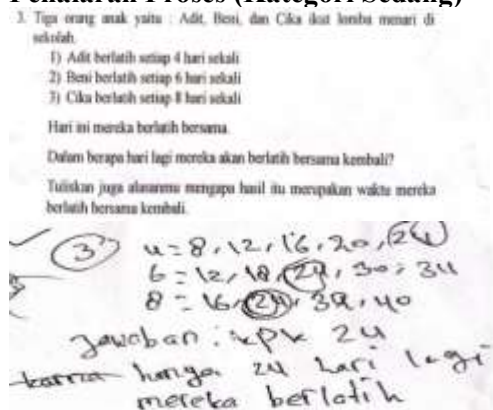 Penalaran Proses (Kategori Sedang)
3. Tiga orang anak yaitu : Adit, Beni, dan Cika ikut lomba menari di
sekolah.
1) Adit berlatih setiap 4 hari sekali
2) Beni berlatih setiap 6 hari sekali
3) Cika berlatih setiap 8 hari sekali
Hari ini mereka berlatih bersama.
Dalam berapa hari lagi mereka akan berlatih bersama kembali?
Tuliskan juga alasanmu mengapa hasil itu merupakan waktu mereka
berlatih bersama kembali.
3 4 = 8, 12, 16, 20, 24
6 = 12, 18, 24, 30, 34
8 = 16, 24, 32, 40
Jawaban : KPK 24
karna hanya 24 hari lagi
mereka berlatih